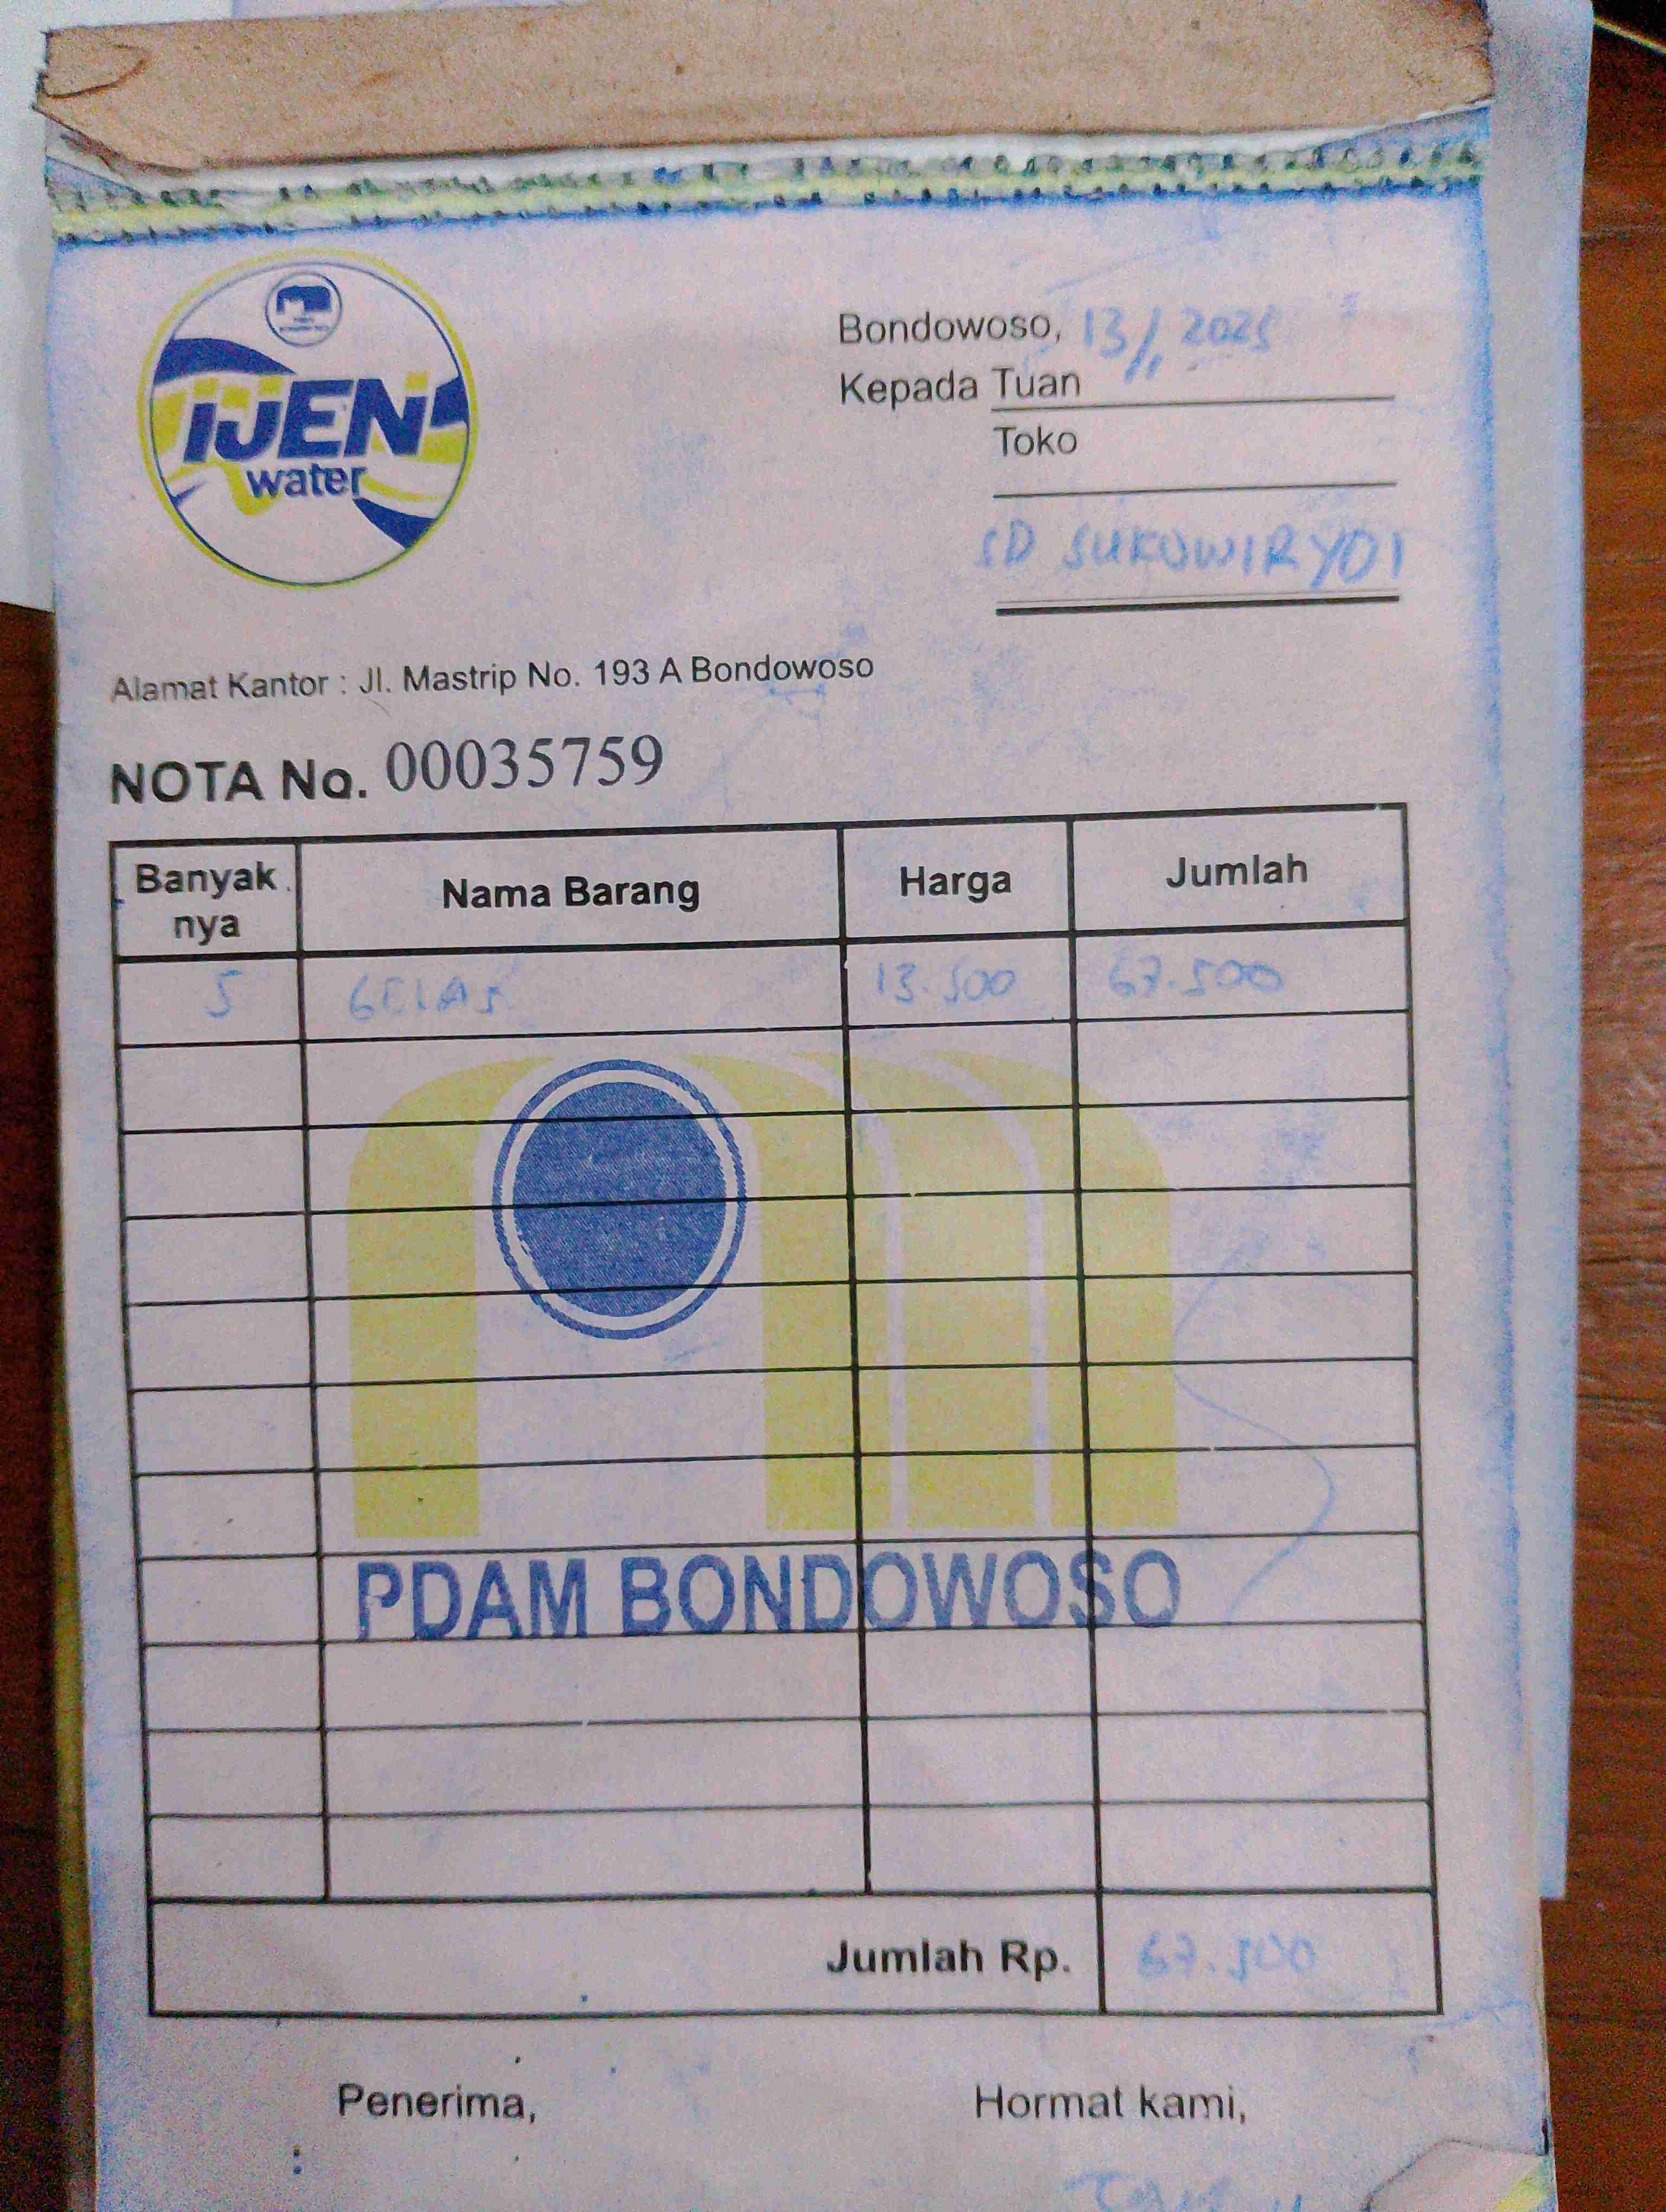 iJEN
water
Bondowoso, 13/11 2025
Kepada Tuan
Toko
SD SUKOWIRYO 1
Alamat Kantor : Jl. Mastrip No. 193 A Bondowoso
NOTA No. 00035759
Banyak nya Nama Barang Harga Jumlah
5 GELAS 13.500 67.500
PDAM BONDOWOSO
Jumlah Rp. 67.500
Penerima, Hormat kami,